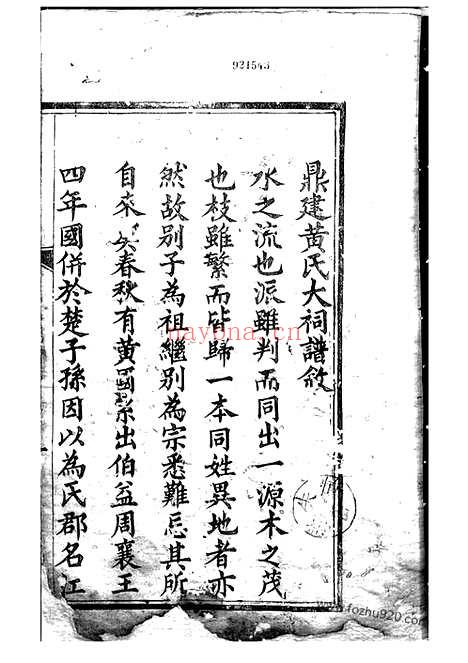 921543
鼎建黄氏大祠譜敘
水之流也派雖判而同出一源木之茂
也枝雖繁而必歸一本同姓異地者亦
然故别子為祖繼别為宗悉難忘其所
自来矣春秋有黄國系出伯益周襄王
四年國併於楚子孫因以為氏郡名江
nayona.cn
www.fozhu920.com